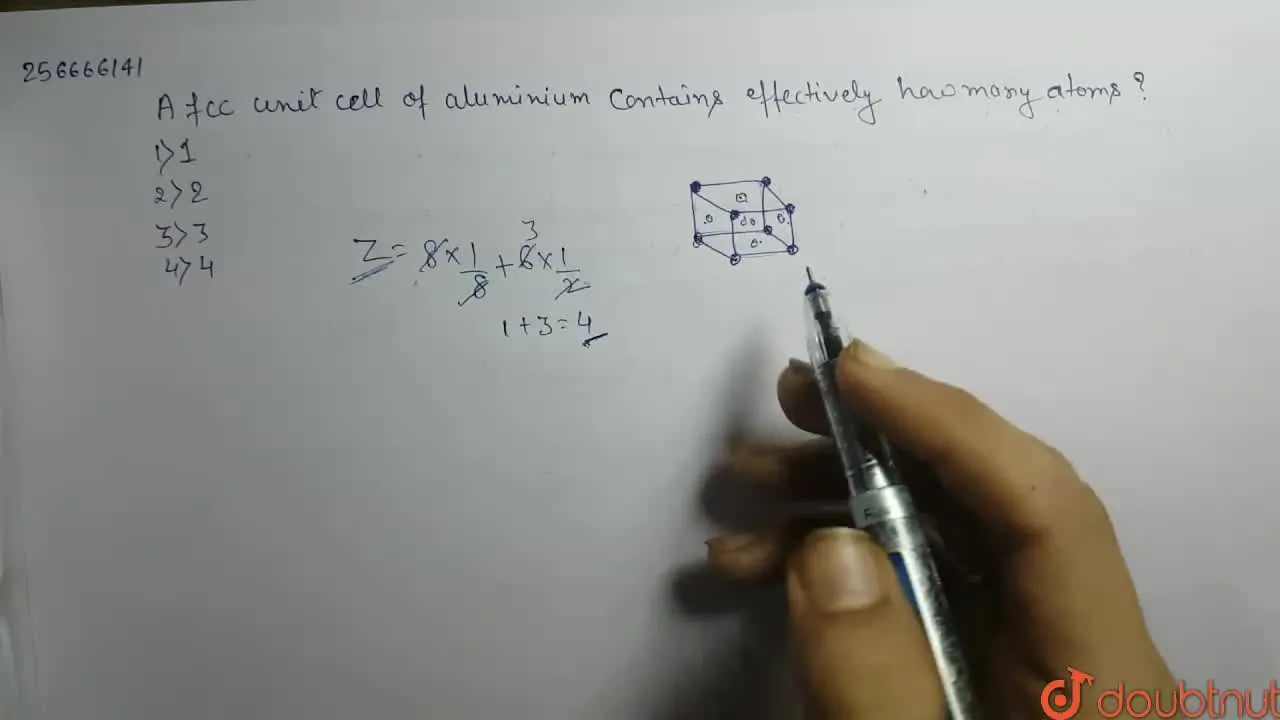 256666141
A fcc unit cell of aluminium contains effectively how many atoms ?
1> 1
2> 2
3> 3
4> 4
3
Z = 8 × 1/8 + 6 × 1/2
1 + 3 = 4
doubtnut